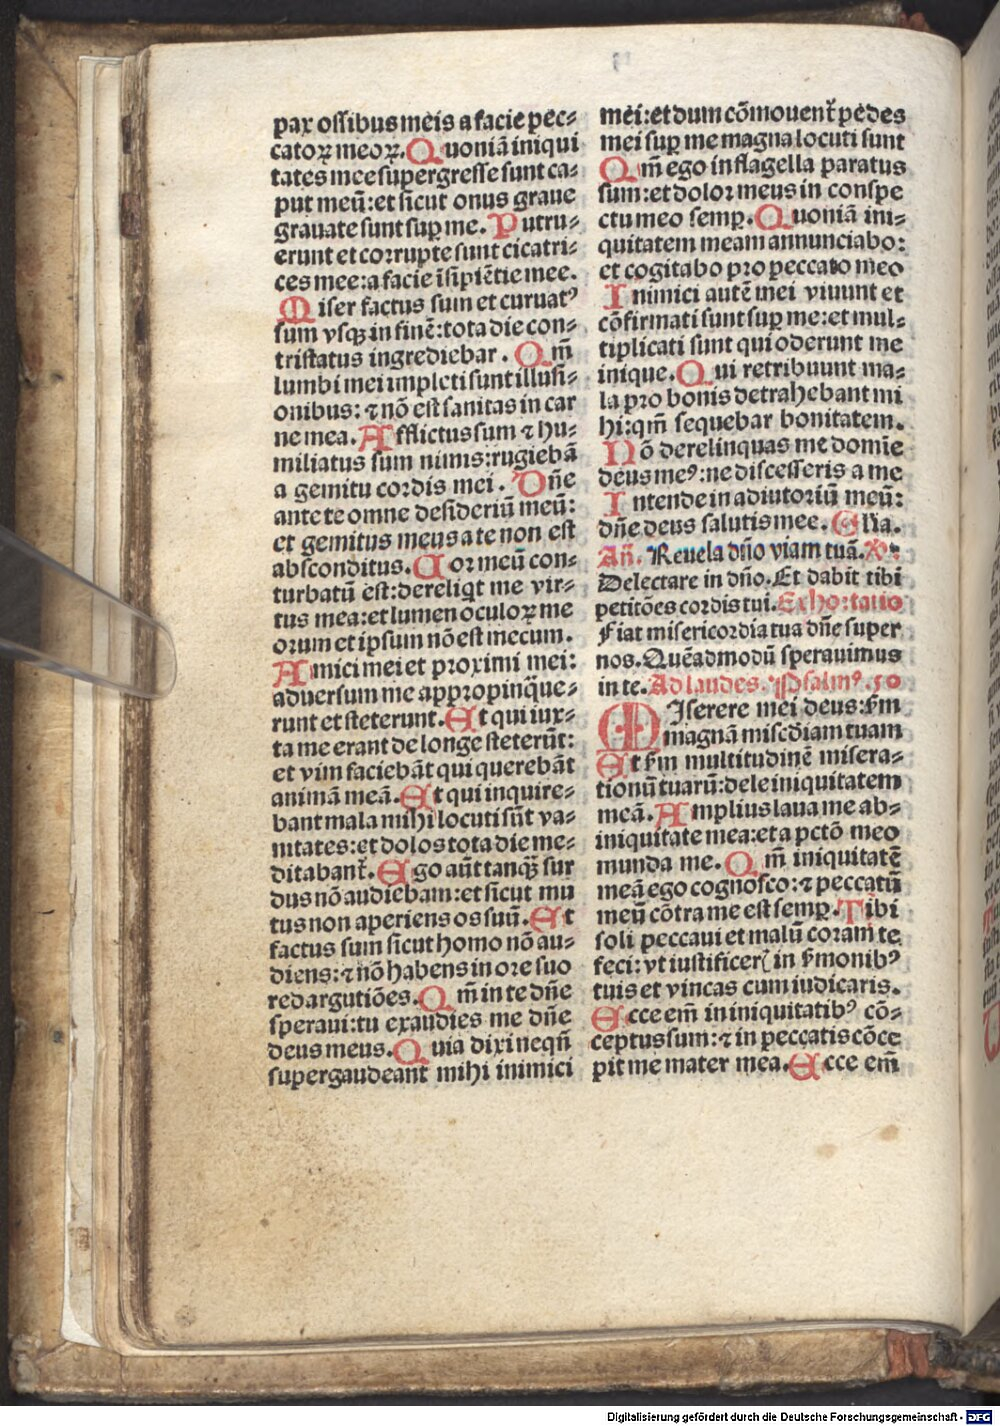 pax ossibus meis a facie pec⸗
catoꝝ meoꝝ. Quoniā iniqui
tates mee supergresse sunt ca⸗
put meū: et sicut onus graue
grauate sunt suꝑ me. Putru⸗
erunt et corrupte sunt cicatri⸗
ces mee: a facie īsipiētie mee.
Miser factus sum et curuatꝰ
sum vsqꝫ in finē: tota die con⸗
tristatus ingrediebar. Qm̄
lumbi mei impleti sunt illusi⸗
onibus: ⁊ nō est sanitas in car
ne mea. Afflictus sum ⁊ hu⸗
miliatus sum nimis: rugiebā
a gemitu cordis mei. Dn̄e
ante te omne desideriū meū:
et gemitus meus a te non est
absconditus. Cor meū con⸗
turbatū est: dereliqt me vir⸗
tus mea: et lumen oculoꝝ me
orum et ipsum nō est mecum.
Amici mei et proximi mei:
aduersum me appropinq̄ue⸗
runt et steterunt. Et qui iux⸗
ta me erant de longe steterūt:
et vim faciebāt qui querebāt
animā meā. Et qui inquire⸗
bant mala mihi locuti sūt va⸗
nitates: et dolos tota die me⸗
ditabant᷑. Ego aūt tanqꝫ̄ sur
dus nō audiebam: et sicut mu
tus non aperiens os suū. Et
factus sum sicut homo nō au⸗
diens: ⁊ nō habens in ore suo
redargutiōes. Qm̄ in te dn̄e
speraui: tu exaudies me dn̄e
deus meus. Quia dixi neqn̄
supergaudeant mihi inimici
mei: et dum cōmouent᷑ pedes
mei suꝑ me magna locuti sunt
Qm̄ ego in flagella paratus
sum: et dolor meus in conspe
ctu meo semꝑ. Quoniā ini⸗
quitatem meam annunciabo:
et cogitabo pro peccato meo
Inimici autē mei viuunt et
cōfirmati sunt suꝑ me: et mul⸗
tiplicati sunt qui oderunt me
inique. Qui retribuunt ma⸗
la pro bonis detrahebant mi
hi: qm̄ sequebar bonitatem.
Nō derelinquas me domīe
deus meꝰ: ne discesseris a me
Intende in adiutoriū meū:
dn̄e deus salutis mee. Glīa.
Añ. Reuela dn̄o viam tuā. ℟.
Delectare in dn̄o. Et dabit tibi
petitōes cordis tui. Exhortatio
Fiat misericordia tua dn̄e super
nos. Quēadmodū sperauimus
in te. Ad laudes. Psalmꝰ. 50
MIserere mei deus: scd̄m
magnā misc̄diam tuam
Et scd̄m multitudinē misera⸗
tionū tuarū: dele iniquitatem
meā. Amplius laua me ab⸗
iniquitate mea: et a pctō meo
munda me. Qm̄ iniquitatē
meā ego cognosco: ⁊ peccatū
meū cōtra me est semꝑ. Tibi
soli peccaui et malū coram te
feci: vt iustificeris in s̄monibꝰ
tuis et vincas cum iudicaris.
Ecce em̄ in iniquitatibꝰ cō⸗
ceptus sum: ⁊ in peccatis cōce
pit me mater mea. Ecce em̄
Digitalisierung gefördert durch die Deutsche Forschungsgemeinschaft - DFG